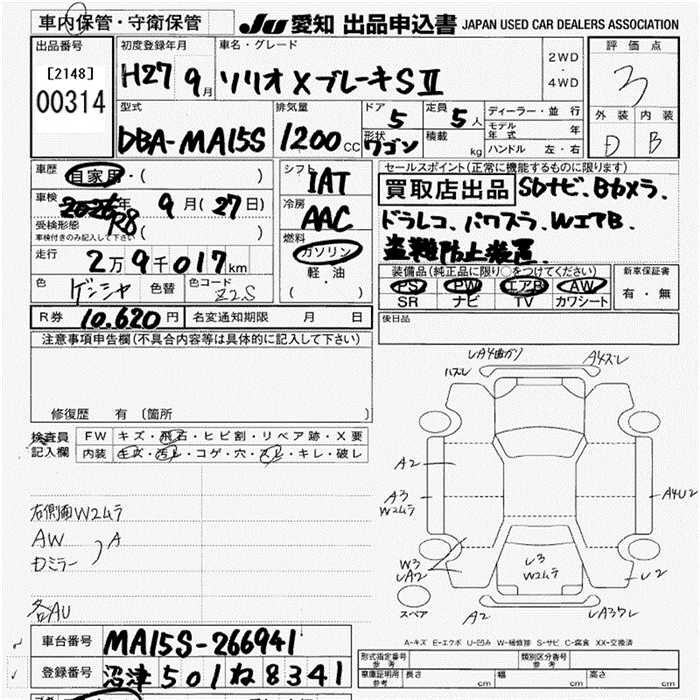 車内保管・守衛保管 JU 愛知 出品申込書 JAPAN USED CAR DEALERS ASSOCIATION
出品番号 初度登録年月 車名・グレード 評価点
[2148] H27 9月 ソリオ X ブレーキSⅡ 2WD・4WD 3
00314
型式 排気量 ドア 定員 ディーラー・並行 外装 内装
DBA-MA15S 1200cc 5 5人 モデル年式 年 D B
形状 ワゴン 積載 kg ハンドル 左・右
車歴 自家用・( ) シフト IAT セールスポイント(正常に機能するものに限ります)
車検 2026年 R8 9月(27日) 冷房 AAC 買取店出品 SDナビ、Bカメラ、
受検形態 ( ) ドラレコ、パワスラ、WエアB、
車検付きのみ記入して下さい 燃料 盗難防止装置
走行 2万9千017km ガソリン 装備品(純正品に限り○をつけてください) 新車保証書
軽・油 PS PW エアB AW 有・無
色 ゲンシヤ 色替 色コード Z2S ( ・ ) SR ナビ TV カワシート
R券 10,620円 名変通知期限 月 日 後日品
注意事項申告欄(不具合内容等は具体的に記入して下さい)
修復歴 有 〔箇所
検査員記入欄 FW キズ・飛石・ヒビ割・リペア跡・X要
内装 キズ・汚レ・コゲ・穴・スレ・キレ・破レ
右側面W2ムラ
AW
Dミラー A
各AU
ハズレ
A4ズレ
A2
A3
W2ムラ
A4U2
W3
UA2
U3
W2ムラ
U2
スペア
A2
A-キズ E-エクボ U-凹み W-補修跡 S-サビ C-腐食 XX-交換済
車台番号 MA15S-266941
登録番号 沼津 501 ね 8341
形式指定番号 参考 類別区分番号 参考
車庫証明用 参考 長さ cm 幅 cm 高さ cm